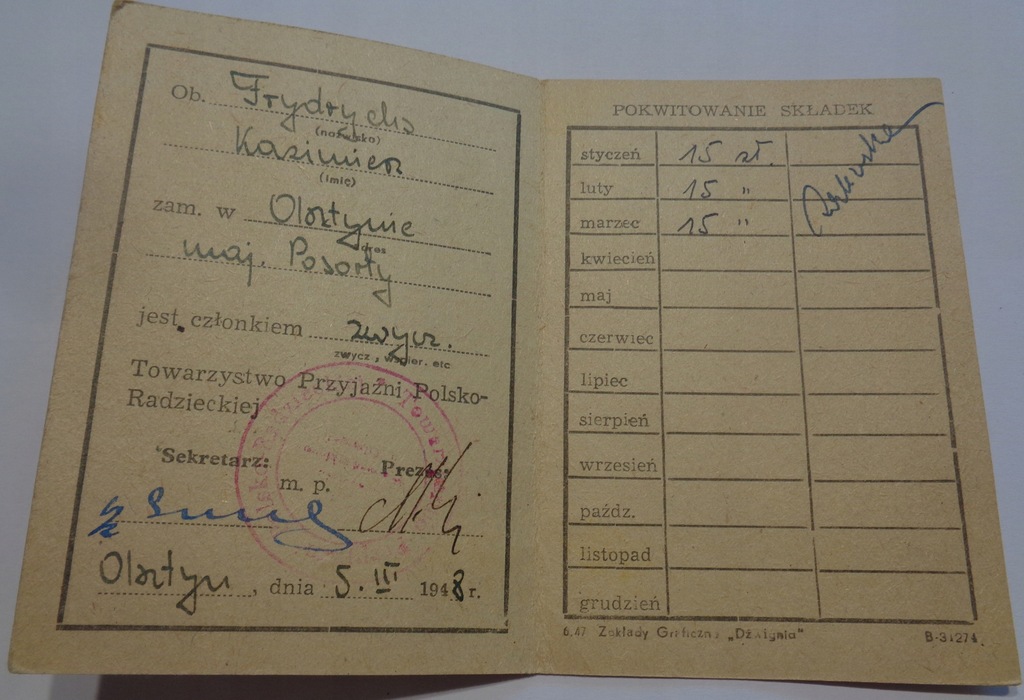 Ob. Frydrych
(nazwisko)
Kazimierz
(imię)
zam. w Olsztynie
adres
maj. Posorty
jest członkiem zwycz.
zwycz., wspier. etc
Towarzystwo Przyjaźni Polsko-
Radzieckiej
Sekretarz: Prezes:
m. p.
Olsztyn, dnia 5. III 1948 r.
POKWITOWANIE SKŁADEK
styczeń 15 zł.
luty 15 "
marzec 15 "
kwiecień
maj
czerwiec
lipiec
sierpień
wrzesień
paźdz.
listopad
grudzień
6.47 Zakłady Graficzne „Dźwignia" B-31274